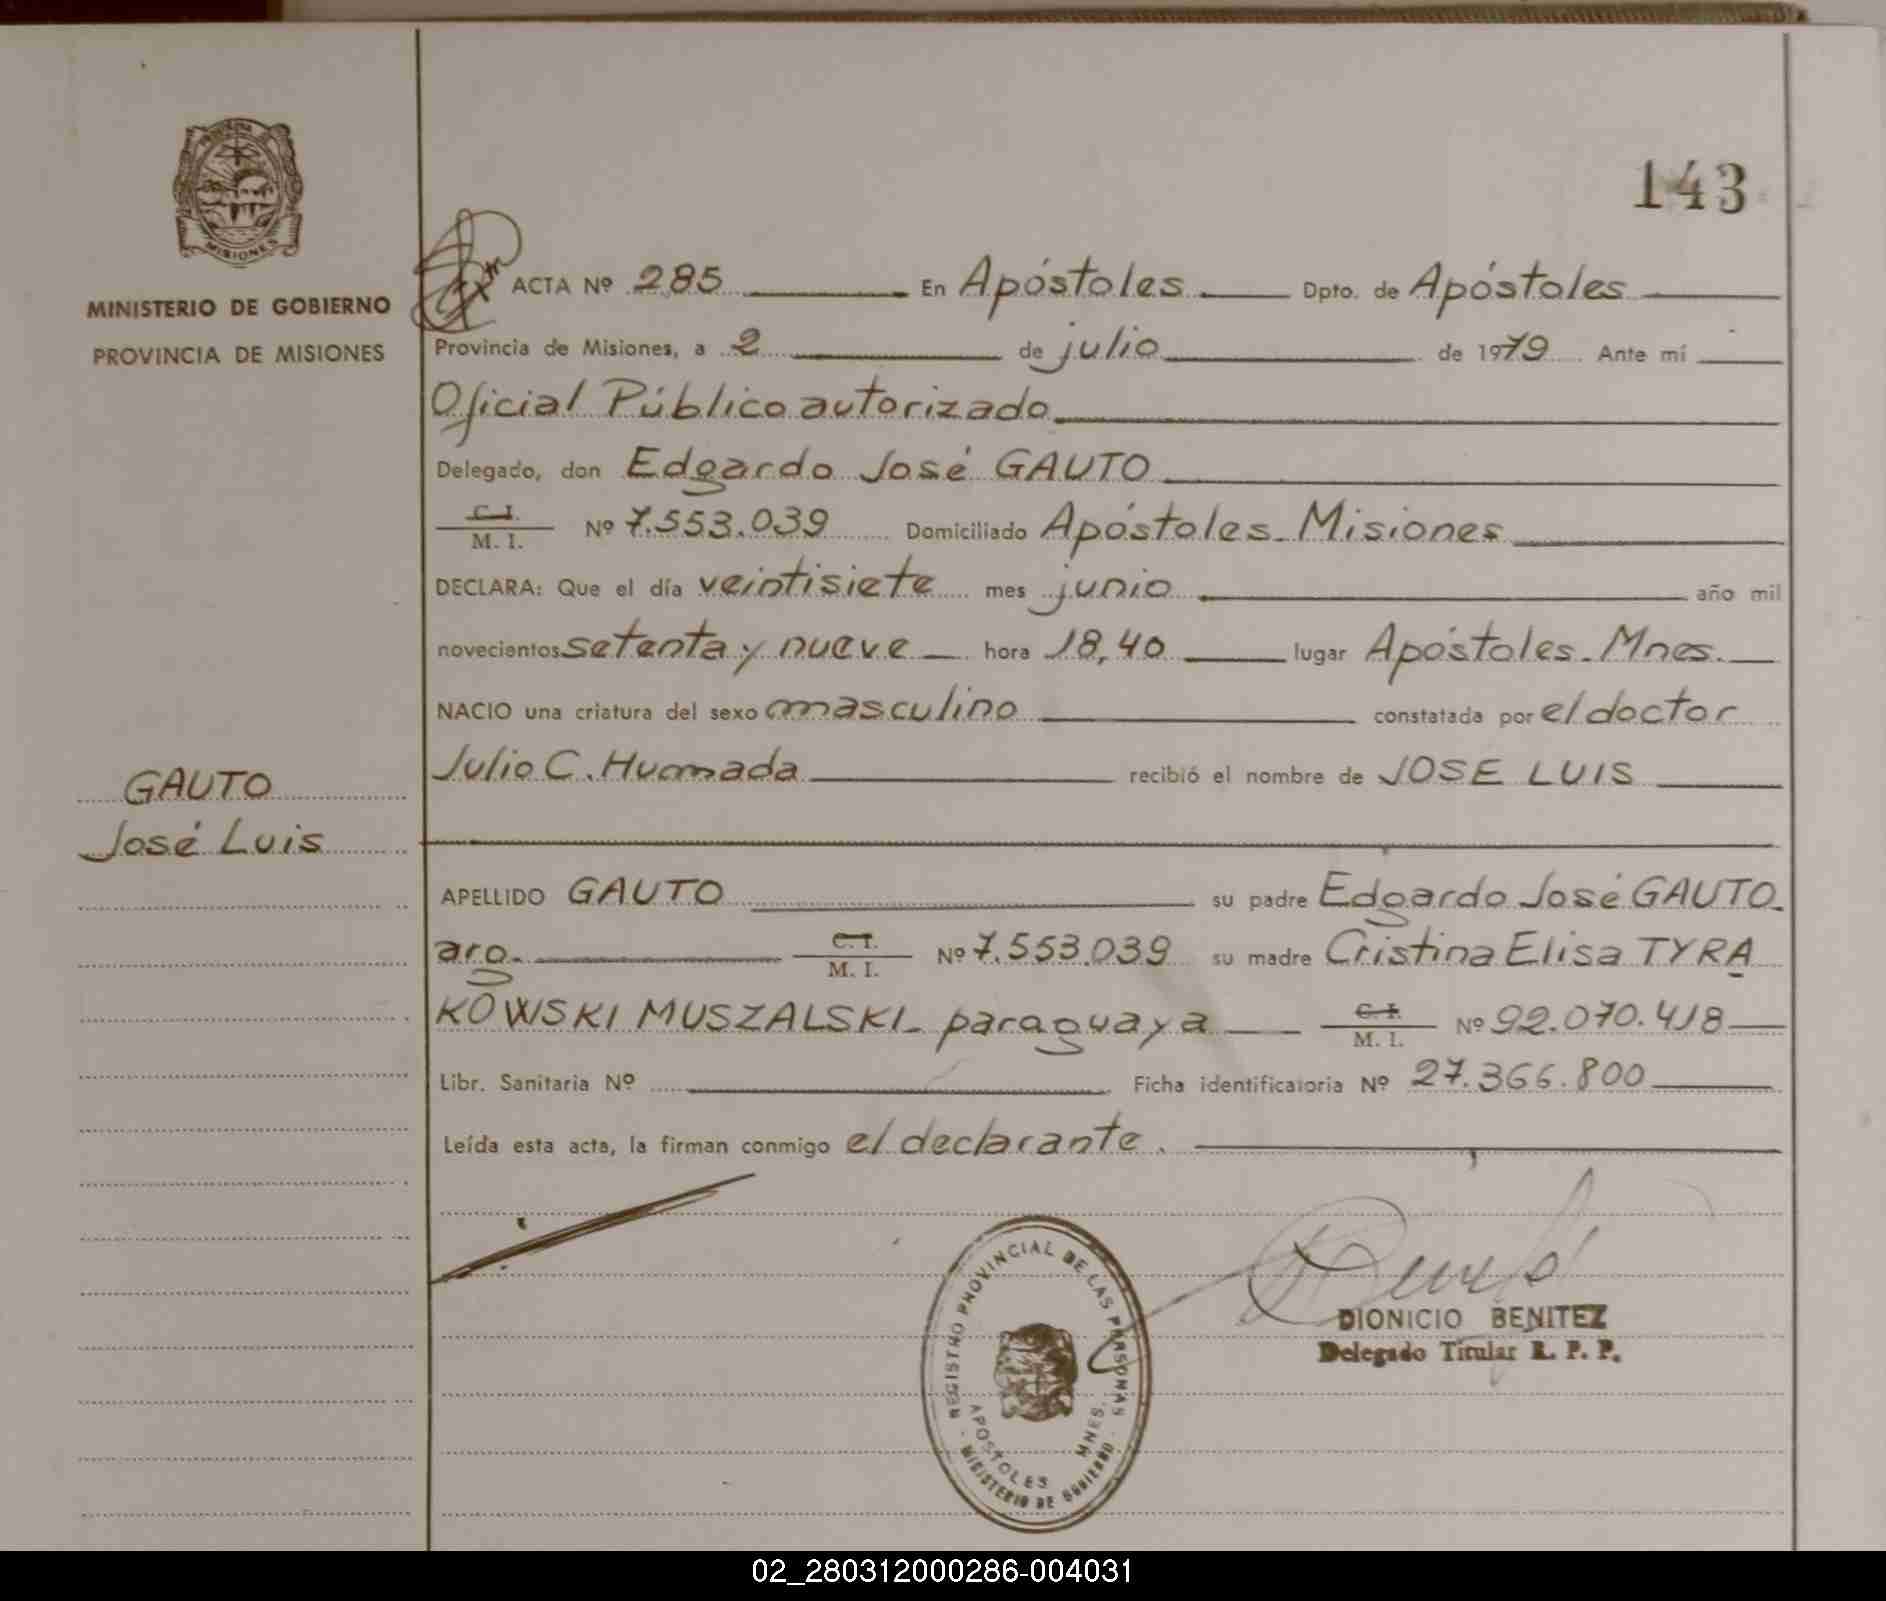 PROVINCIA DE
MISIONES
MINISTERIO DE GOBIERNO
PROVINCIA DE MISIONES
143
ACTA Nº 285 En Apóstoles Dpto. de Apóstoles
Provincia de Misiones, a 2 de julio de 1979 Ante mí
Oficial Público autorizado
Delegado, don Edgardo José GAUTO
C. I.
M. I. Nº 7.553.039 Domiciliado Apóstoles - Misiones
DECLARA: Que el día veintisiete mes junio año mil
novecientos setenta y nueve hora 18,40 lugar Apóstoles - Mnes.
NACIO una criatura del sexo masculino constatada por el doctor
Julio C. Humada recibió el nombre de JOSE LUIS
GAUTO
José Luis
APELLIDO GAUTO su padre Edgardo José GAUTO-
arg. C. I.
M. I. Nº 7.553.039 su madre Cristina Elisa TYRA
KOWSKI MUSZALSKI - paraguaya C. I.
M. I. Nº 92.070.418
Libr. Sanitaria Nº Ficha identificatoria Nº 27.366.800
Leída esta acta, la firman conmigo el declarante.
REGISTRO PROVINCIAL DE LAS PERSONAS
APOSTOLES MNES.
MINISTERIO DE GOBIERNO
DIONICIO BENITEZ
Delegado Titular R. P. P.
02_280312000286-004031